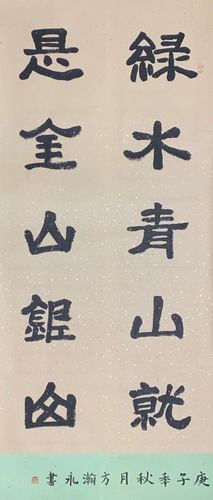 綠水青山就
是金山銀山
庚子季秋月方瀚永書